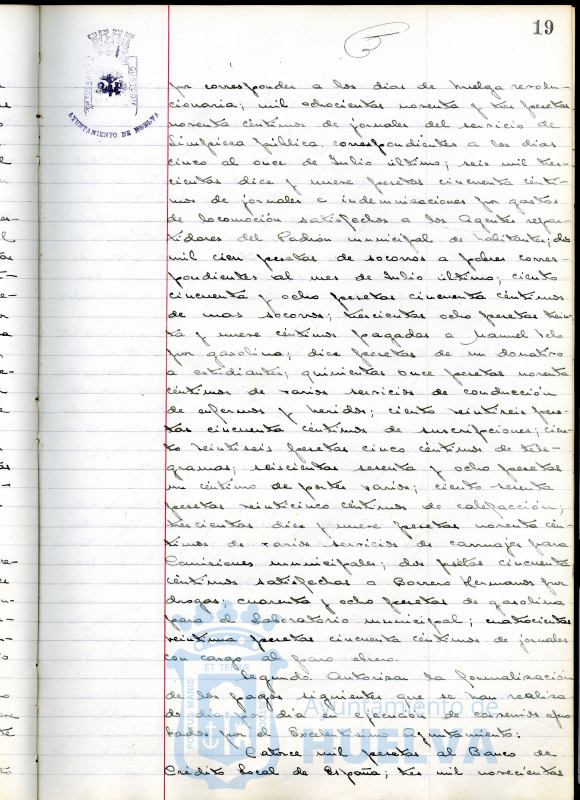 19
AYUNTAMIENTO DE HUELVA
por corresponder a los dias de huelga revolu-
cionaria; mil ochocientas noventa y tres pesetas
noventa céntimos de jornales del servicio de
Limpieza pública, correspondientes a los dias
cinco al once de Julio último; seis mil tres-
cientas diez y nueve pesetas cincuenta cénti-
mos de jornales e indemnizaciones por gastos
de locomoción satisfechos a los Agentes repar-
tidores del Padrón municipal de habitantes; dos
mil cien pesetas de socorros a pobres corres-
pondientes al mes de Julio último; ciento
cincuenta y ocho pesetas cincuenta céntimos
de mas socorros; trescientas ocho pesetas trein-
ta y nueve céntimos pagadas a Manuel
por gasolina; diez pesetas de un donativo
a estudiantes; quinientas once pesetas noventa
céntimos de varios servicios de conducción
de enfermos y heridos; ciento veintiseis pese-
tas cincuenta céntimos de suscripciones; cien-
to veintiseis pesetas cinco céntimos de tele-
gramas; seiscientas sesenta y ocho pesetas
un céntimo de portes varios; ciento sesenta
pesetas veinticinco céntimos de calefacción;
trescientas diez y nueve pesetas noventa cén-
timos de varios servicios de carruajes para
Comisiones municipales; dos pesetas cincuenta
céntimos satisfechas a Borrero Hermanos por
drogas; cuarenta y ocho pesetas de gasolina
para el Laboratorio municipal; cuatrocientas
veintiuna pesetas cincuenta céntimos de jornales
con cargo al paro obrero.
Segundo. Autorizar la formalización
de los pagos siguientes que se han realiza-
do dia por dia en ejecución de acuerdos apro-
bados por el Excelentísimo Ayuntamiento:
Catorce mil pesetas al Banco de
Crédito Local de España; tres mil novecientas
PORTUS MARIS
ET TERRAE
Ayuntamiento de
HUELVA